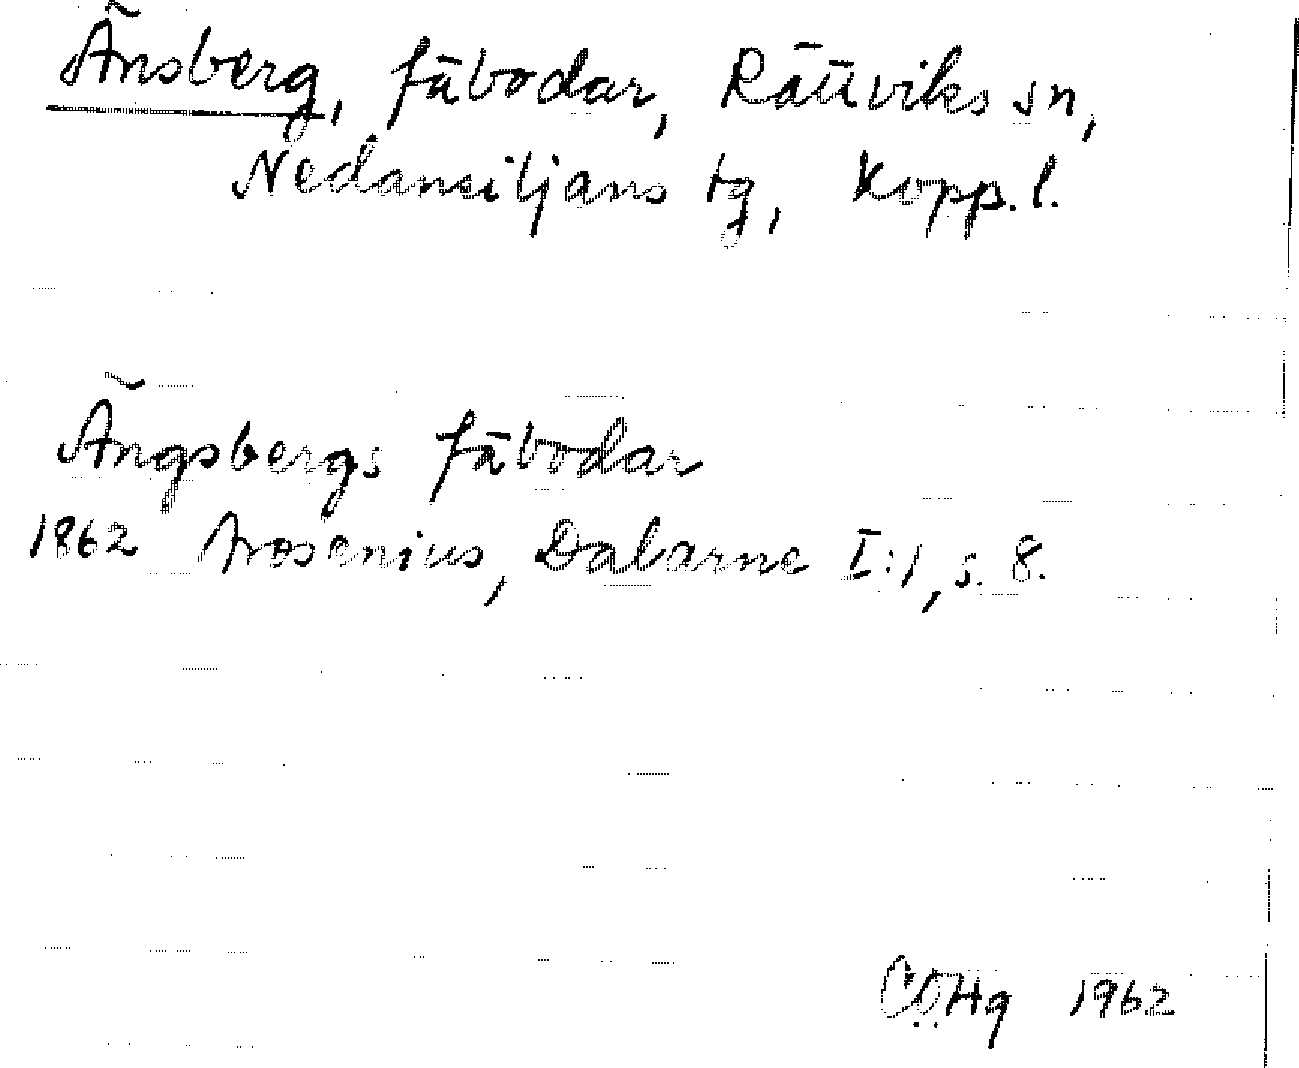 Änsberg, fäbodar, Rättviks sn,
Nedansiljans tg, Kopp. l.
Ängsbergs fäbodar
1862 Arosenius, Dalarne I:1, s. 8.
CÖHg 1962